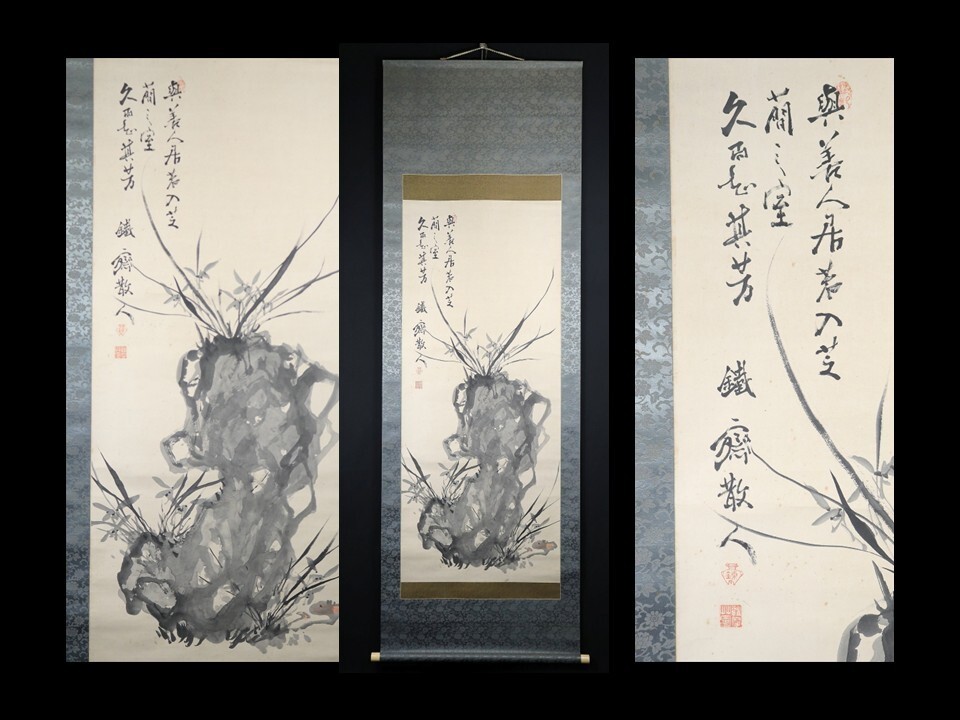 與善人居若入芝
蘭之室
久而忘其芳
鐵齋散人
與善人居若入芝
蘭之室
久而忘其芳
鐵齋散人
與善人居若入芝
蘭之室
久而忘其芳
鐵齋散人